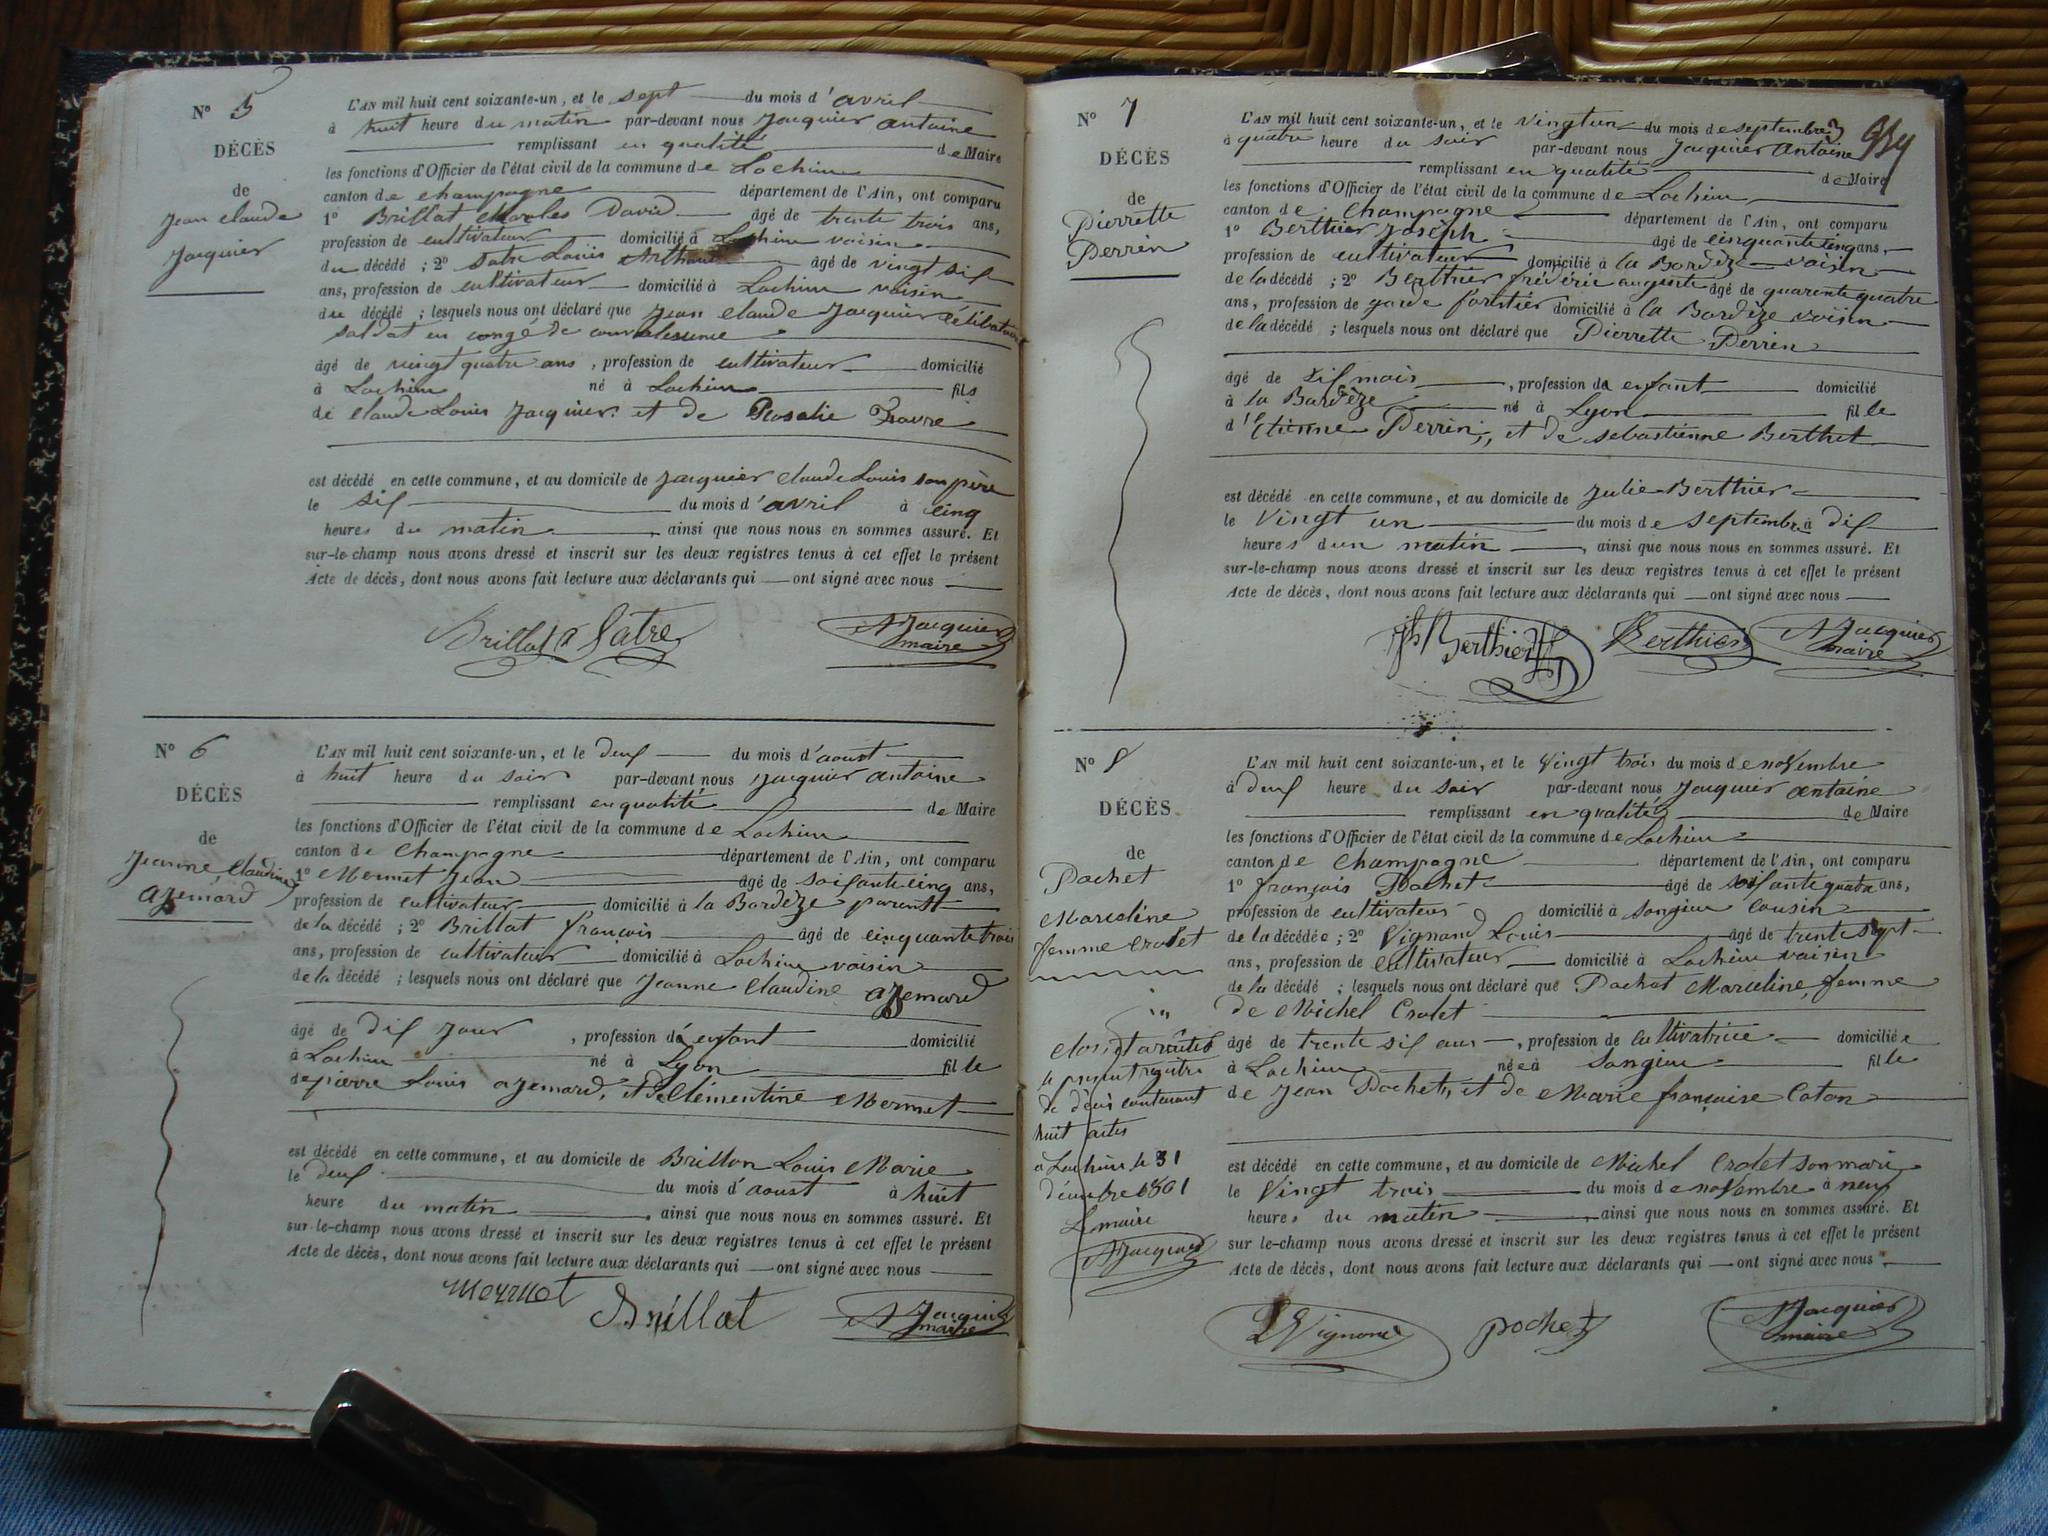 N° 5
DÉCÈS
de
Jean Claude
Jacquier
L'AN mil huit cent soixante-un, et le sept du mois d'avril
à huit heure du matin par-devant nous Jacquier Antoine
remplissant en qualité de Maire
les fonctions d'Officier de l'état civil de la commune de Lochieu
canton de Champagne département de l'Ain, ont comparu
1° Brillat Charles David âgé de trente trois ans,
profession de cultivateur domicilié à Lochieu voisin
du décédé ; 2° Satre Louis Arthaud âgé de vingt six
ans, profession de cultivateur domicilié à Lochieu voisin
du décédé ; lesquels nous ont déclaré que Jean Claude Jacquier célibataire
soldat en congé de convalescence
âgé de vingt quatre ans, profession de cultivateur domicilié
à Lochieu né à Lochieu fils
de Claude Louis Jacquier et de Rosalie Favre
est décédé en cette commune, et au domicile de Jacquier Claude Louis son père
le six du mois d'avril à cinq
heures du matin ainsi que nous nous en sommes assuré. Et
sur-le-champ nous avons dressé et inscrit sur les deux registres tenus à cet effet le présent
Acte de décès, dont nous avons fait lecture aux déclarants qui ont signé avec nous
Brillat Satre A Jacquier
maire
N° 6
DÉCÈS
de
Jeanne Claudine
Azemard
L'AN mil huit cent soixante-un, et le deux du mois d'aoust
à huit heure du soir par-devant nous Jacquier Antoine
remplissant en qualité de Maire
les fonctions d'Officier de l'état civil de la commune de Lochieu
canton de Champagne département de l'Ain, ont comparu
1° Mermet Jean âgé de soixante cinq ans,
profession de cultivateur domicilié à la Bardèze parent
de la décédé ; 2° Brillat françois âgé de cinquante trois
ans, profession de cultivateur domicilié à Lochieu voisin
de la décédé ; lesquels nous ont déclaré que Jeanne Claudine Azemard
âgé de dix jour, profession de enfant domicilié
à Lochieu né à Lyon fille
de pierre Louis Azemard, et de Clémentine Mermet
est décédé en cette commune, et au domicile de Brillon Louis Marie
le deux du mois d'aoust à huit
heure du matin, ainsi que nous nous en sommes assuré. Et
sur-le-champ nous avons dressé et inscrit sur les deux registres tenus à cet effet le présent
Acte de décès, dont nous avons fait lecture aux déclarants qui ont signé avec nous
Mermet Brillat A Jacquier
maire
N° 7
DÉCÈS
de
Pierrette
Perrin
L'AN mil huit cent soixante-un, et le vingt un du mois de septembre
à quatre heure du soir par-devant nous Jacquier Antoine
remplissant en qualité de Maire
les fonctions d'Officier de l'état civil de la commune de Lochieu
canton de Champagne département de l'Ain, ont comparu
1° Berthier Joseph âgé de cinquante cinq ans,
profession de cultivateur domicilié à la Bardèze voisin
de la décédé ; 2° Berthier frédéric auguste âgé de quarente quatre
ans, profession de garde forestier domicilié à la Bardèze voisin
de la décédé ; lesquels nous ont déclaré que Pierrette Perrin
âgé de six mois, profession de enfant domicilié
à la Bardèze né à Lyon fille
d'Etienne Perrin, et de Sebastienne Berthet
est décédé en cette commune, et au domicile de Julie Berthier
le vingt un du mois de septembre à dix
heures dun matin, ainsi que nous nous en sommes assuré. Et
sur-le-champ nous avons dressé et inscrit sur les deux registres tenus à cet effet le présent
Acte de décès, dont nous avons fait lecture aux déclarants qui ont signé avec nous
Jh Berthier Berthier A Jacquier
maire
N° 8
DÉCÈS
de
Pochet
Marceline
femme Crolet
L'AN mil huit cent soixante-un, et le vingt trois du mois de novembre
à deux heure du soir par-devant nous Jacquier Antoine
remplissant en qualité de Maire
les fonctions d'Officier de l'état civil de la commune de Lochieu
canton de Champagne département de l'Ain, ont comparu
1° françois Pochet âgé de soixante quatre ans,
profession de cultivateur domicilié à Songieu cousin
de la décédée ; 2° Vignand Louis âgé de trente sept
ans, profession de cultivateur domicilié à Lochieu voisin
de la décédé ; lesquels nous ont déclaré que Pochet Marceline femme
de Michel Crolet
âgé de trente six ans, profession de cultivatrice domiciliée
à Lochieu née à Songieu fille
de Jean Pochet, et de Marie françoise Coton
est décédé en cette commune, et au domicile de Michel Crolet son mari
le vingt trois du mois de novembre à neuf
heures du matin ainsi que nous nous en sommes assuré. Et
sur le-champ nous avons dressé et inscrit sur les deux registres tenus à cet effet le présent
Acte de décès, dont nous avons fait lecture aux déclarants qui ont signé avec nous
Clos et arrêté
le present registre
de décès contenant
huit actes
à Lochieu le 31
décembre 1861
Le maire
A Jacquier
L Vignand pochet A Jacquier
maire